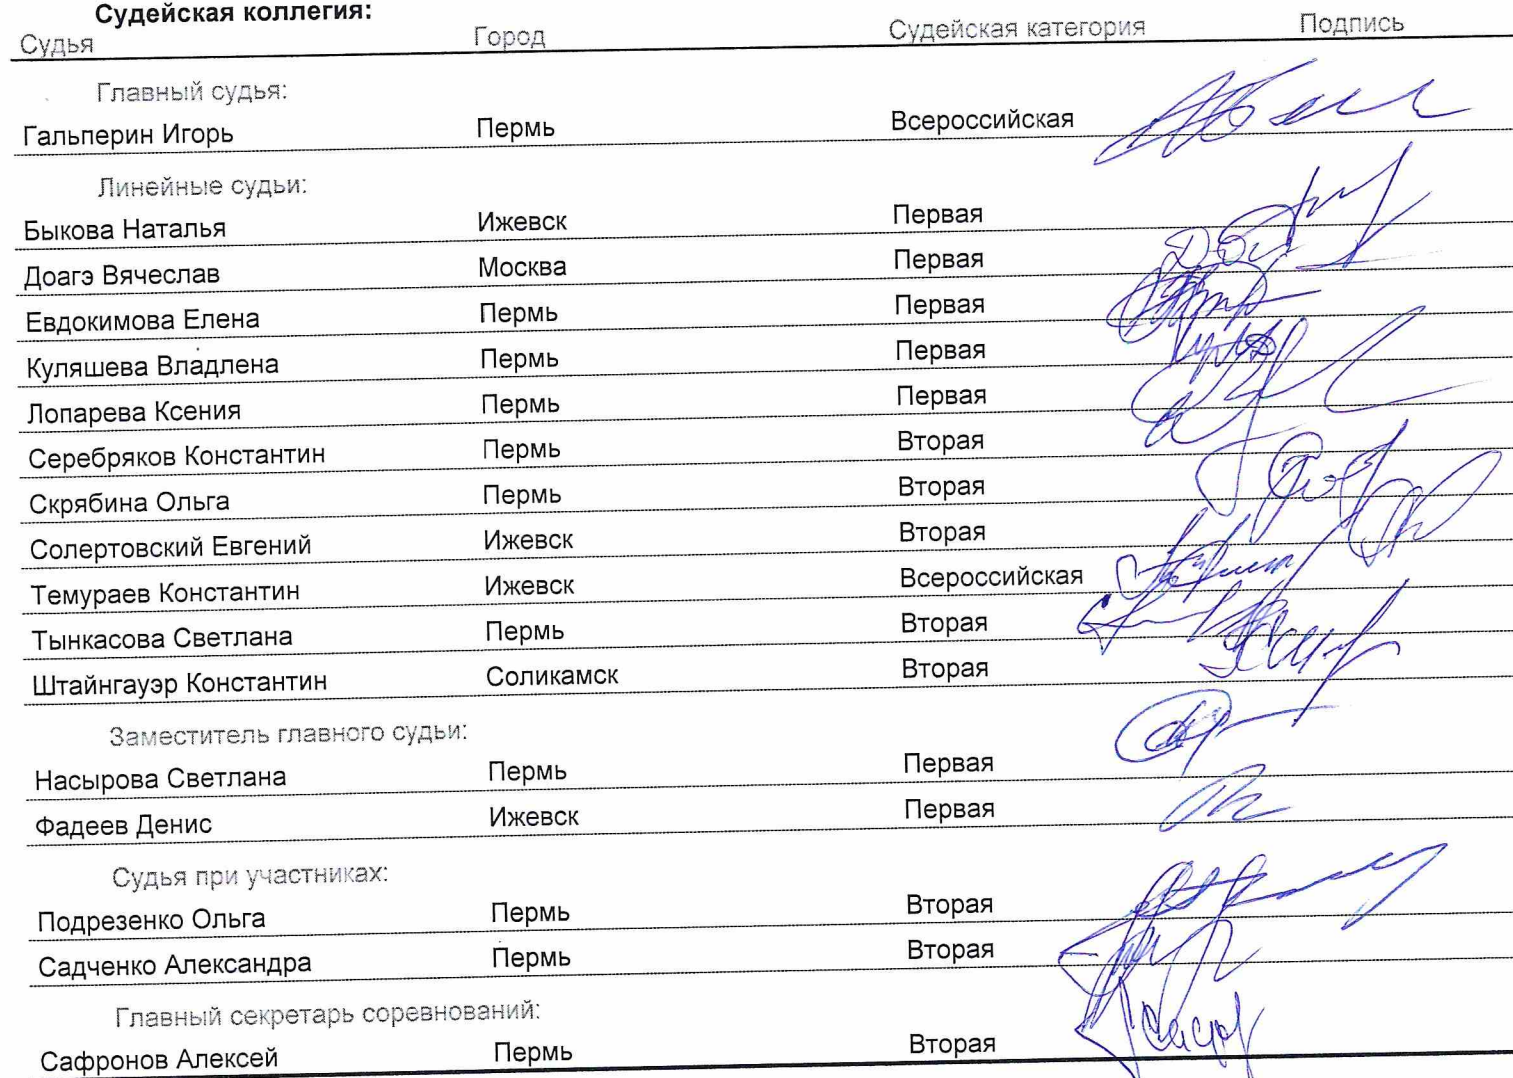 Судейская коллегия:
Судья Город Судейская категория Подпись
Главный судья:
Гальперин Игорь Пермь Всероссийская
Линейные судьи:
Быкова Наталья Ижевск Первая
Доагэ Вячеслав Москва Первая
Евдокимова Елена Пермь Первая
Куляшева Владлена Пермь Первая
Лопарева Ксения Пермь Первая
Серебряков Константин Пермь Вторая
Скрябина Ольга Пермь Вторая
Солертовский Евгений Ижевск Вторая
Темураев Константин Ижевск Всероссийская
Тынкасова Светлана Пермь Вторая
Штайнгауэр Константин Соликамск Вторая
Заместитель главного судьи:
Насырова Светлана Пермь Первая
Фадеев Денис Ижевск Первая
Судья при участниках:
Подрезенко Ольга Пермь Вторая
Садченко Александра Пермь Вторая
Главный секретарь соревнований:
Сафронов Алексей Пермь Вторая